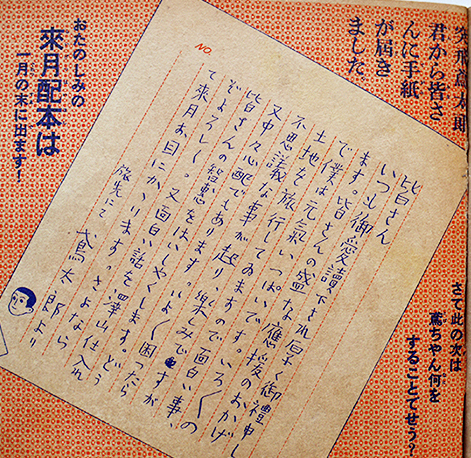 君から皆さ
んに手紙
が届き
ました
NO.
皆さん
いつも御愛讀下され厚く御禮申し
ます。皆さんの盛な應援のおかげ
で僕は元氣いっぱいです。いろ〱の
土地を旅行してゐますので面白い事、
不思議な事が起り、樂みですが、
又中々心配でもあります。いよ〱困つたら
皆さんの智慧をはいしやくします。どう
ぞよろしく。又面白い話を澤山仕入れ
て來月お目にかゝります。さよなら
旅先にて 鳶太郎より
さて此の次は
鳶ちやん何を
することでせう?
おたのしみの
來月配本は
一月の末に出ます!